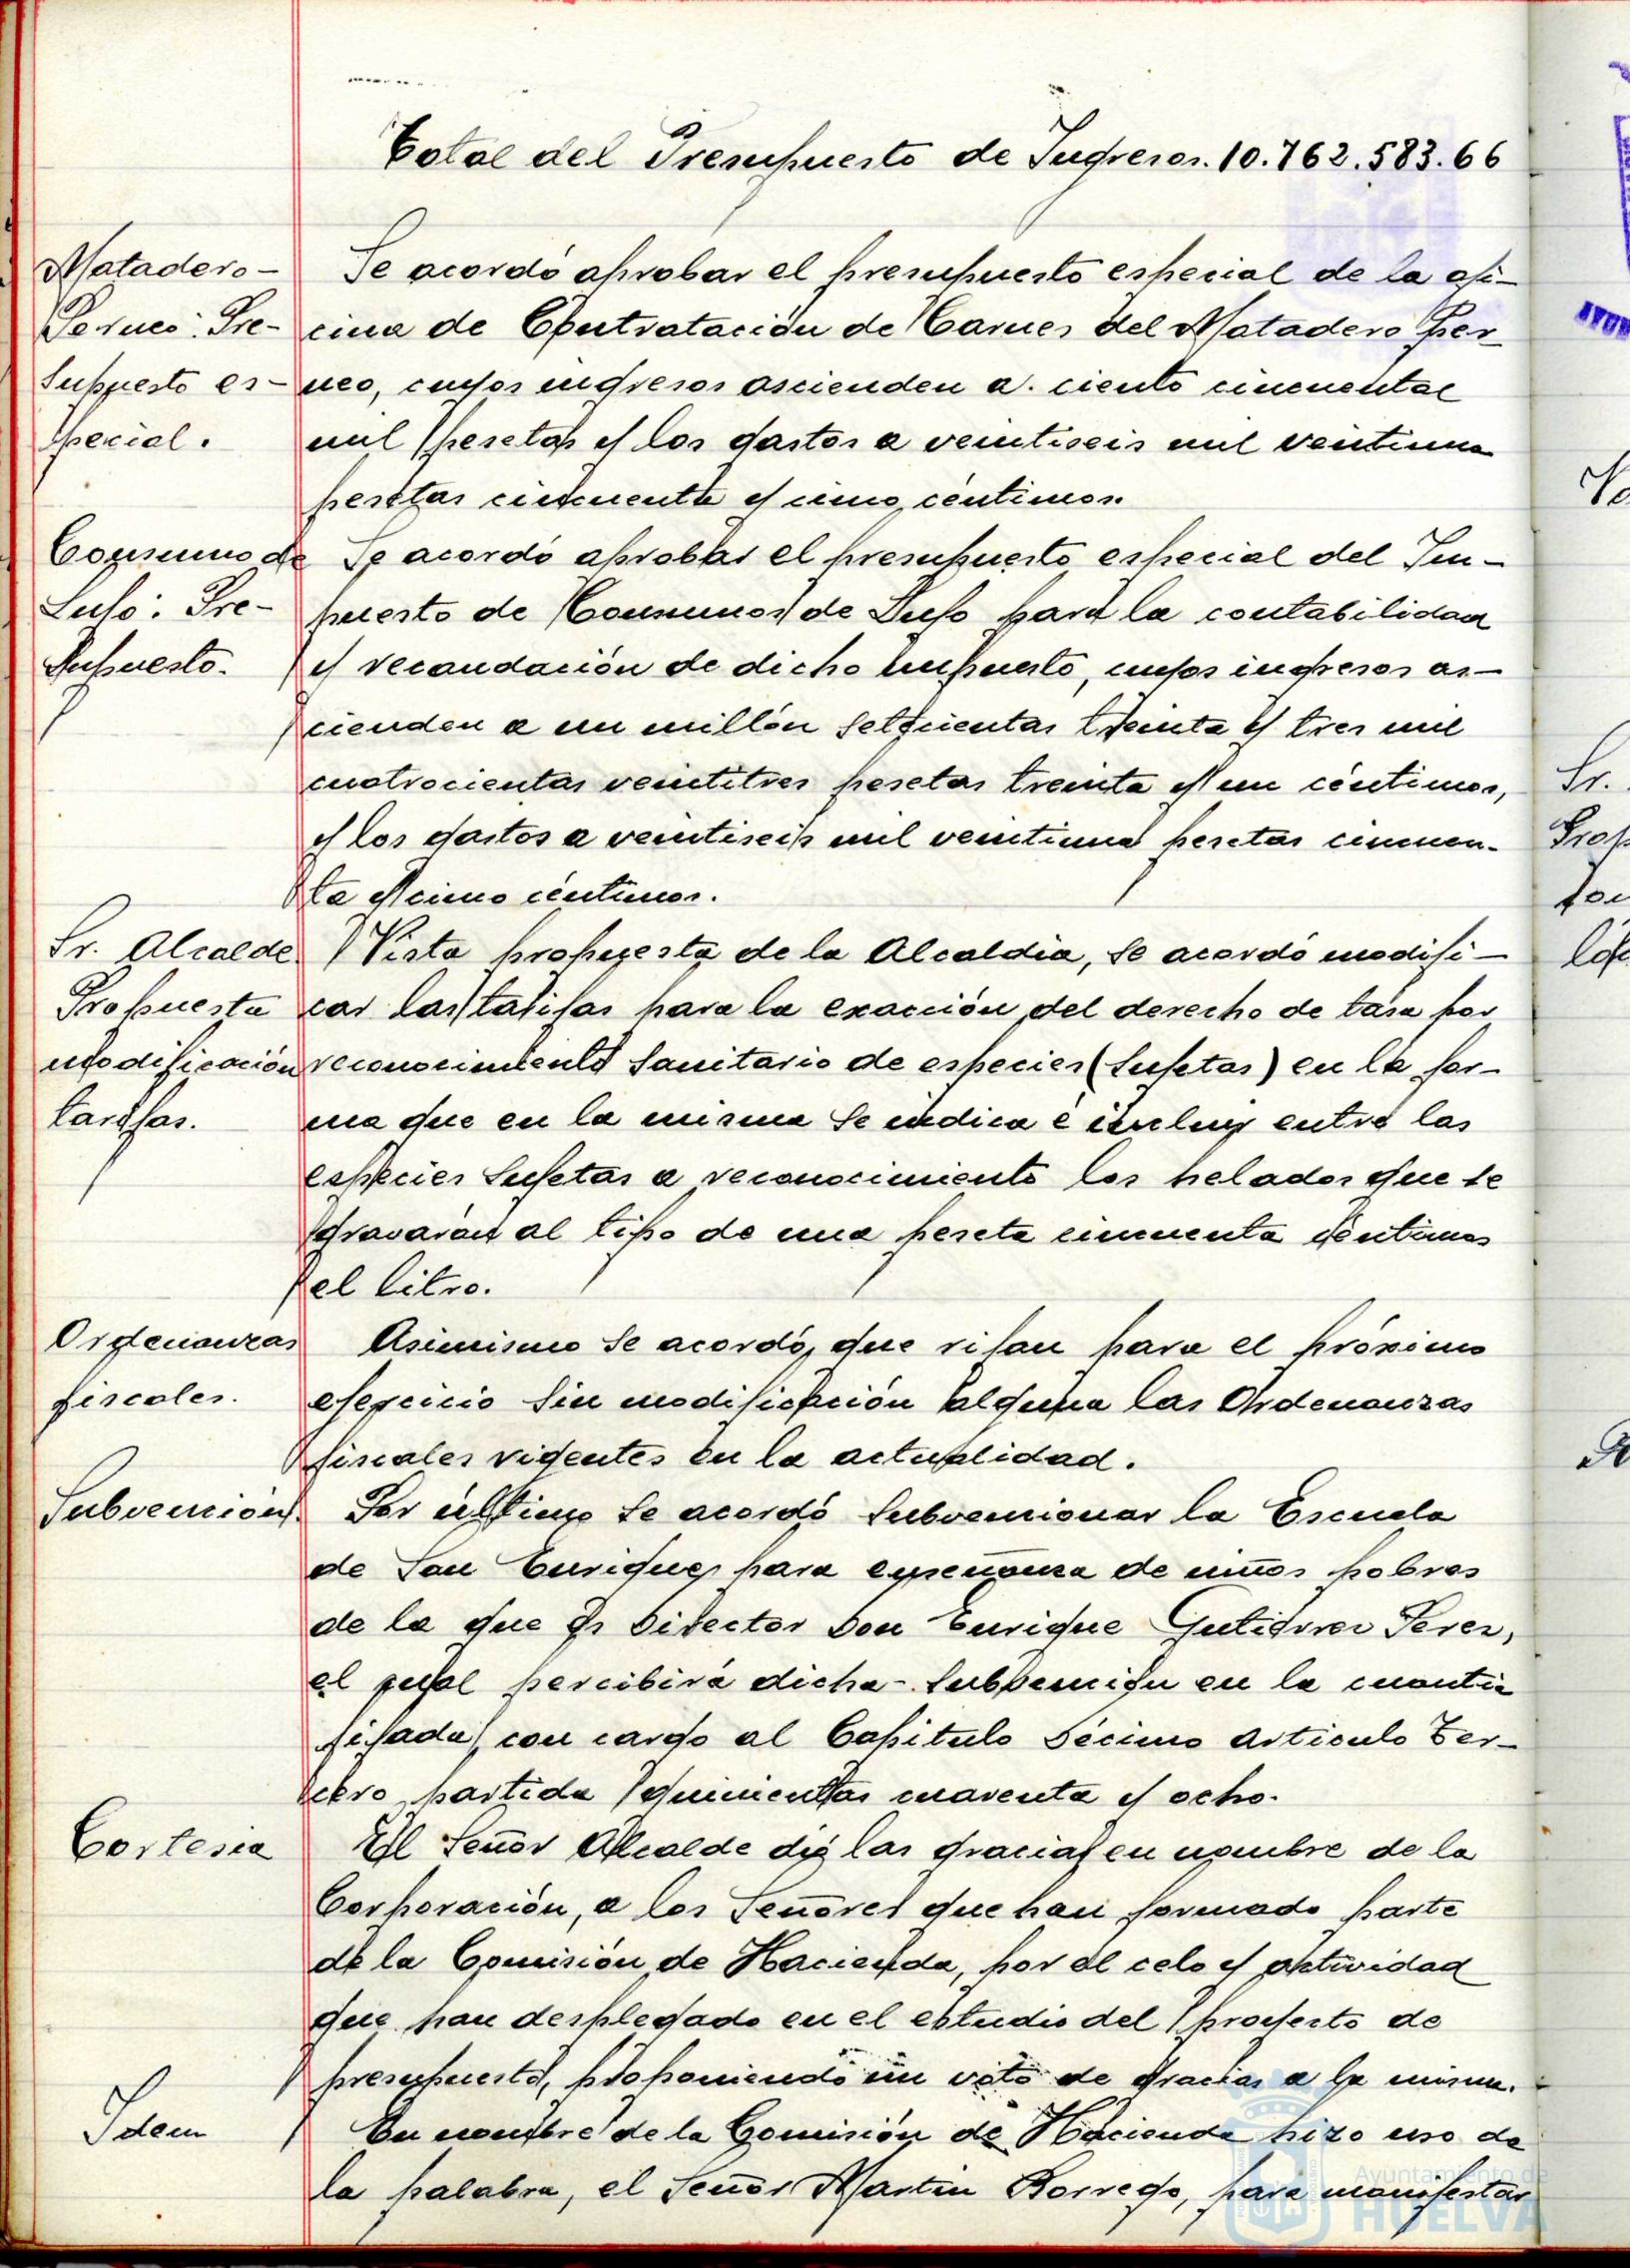 Total del Presupuesto de Ingresos. 10.762.583.66
Matadero-
Porcuo: Pre-
supuesto es-
pecial.
Se acordó aprobar el presupuesto especial de la ofi-
cina de Contratación de Carnes del Matadero Por
cuo, cuyos ingresos ascienden a ciento cincuenta
mil pesetas y los gastos a veintiseis mil veintiuna
pesetas cincuenta y cinco céntimos.
Consumo de
Lujo: Pre-
supuesto.
Se acordó aprobar el presupuesto especial del Im-
puesto de Consumos de Lujo para la contabilidad
y recaudación de dicho impuesto, cuyos ingresos as-
cienden a un millón setecientas treinta y tres mil
cuatrocientas veintitres pesetas treinta y un céntimos,
y los gastos a veintiseis mil veintiuna pesetas cincuen-
ta y cinco céntimos.
Sr. Alcalde
Propuesta
modificación
tarifas.
Vista propuesta de la Alcaldia, se acordó modifi-
car las tarifas para la exacción del derecho de tasa por
reconocimiento Sanitario de especies (sujetas) en la for-
ma que en la misma se indica é incluir entre las
especies sujetas a reconocimiento los helados que se
gravarán al tipo de una peseta cincuenta céntimos
el litro.
Ordenanzas
fiscales.
Asimismo se acordó, que rijan para el próximo
ejercicio sin modificación alguna las Ordenanzas
fiscales vigentes en la actualidad.
Subvención.
Por último se acordó subvencionar la Escuela
de San Enrique, para enseñanza de niños pobres
de la que es Director Don Enrique Gutierrez Perez,
el cual percibirá dicha subvención en la cuantia
fijada, con cargo al Capitulo Décimo articulo Ter-
cero, partida quinientas cuarenta y ocho.
Cortesia
El Señor Alcalde dió las gracias en nombre de la
Corporación, a los Señores que han formado parte
de la Comisión de Hacienda, por el celo y actividad
que han desplegado en el estudio del proyecto de
presupuesto, proponiendo un voto de gracias a la misma.
Idem
En nombre de la Comisión de Hacienda hizo uso de
la palabra, el Señor Martin Borrego, para manifestar
Ayuntamiento de
HUELVA